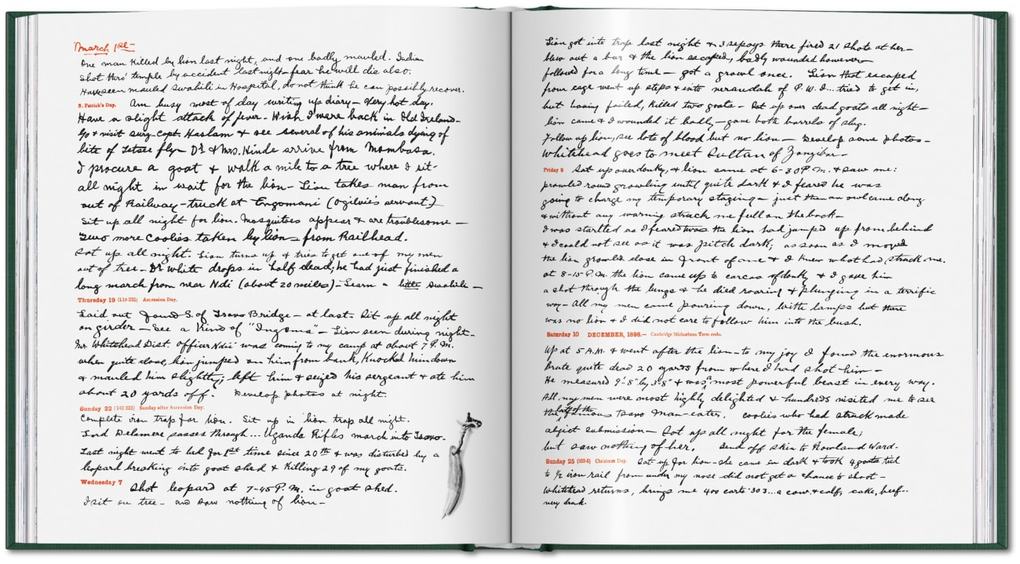 March 1st—
One man killed by lion last night, and one badly mauled. Indian
shot thro' temple by accident last night—fear he will die also.
Have seen mauled Swahili in Hospital, do not think he can possibly recover.
S. Patrick's Day. Am busy most of day writing up diary—Very hot day.
Have a slight attack of fever. Wish I were back in Old Ireland—
Go & visit Surg. Capt. Haslam & see several of his animals dying of
bite of Tsetse fly—Dr. & Mrs. Hinde arrive from Mombasa.
I procure a goat & walk a mile to a tree where I sit
all night in wait for the lion—Lion takes man from
out of Railway-truck at Engomani (Ogilvie's servant)—
Sit up all night for lion. Mosquitoes appear & are troublesome—
Two more coolies taken by lion from Railhead.
Sat up all night. Lion turns up & tries to get one of my men
out of tree—Dr White drops in half dead; he had just finished a
long march from near Ndi (about 20 miles)—Learn a little Swahili—
Thursday 19 Ascension Day.
Laid out found S. of Tsavo Bridge—at last. Sit up all night
on girder—See a kind of "Ingoma"—Lion seen during night—
Mr. Whitehead Dist. Officer Ndii was coming to my camp at about 7 P.M.
when quite close, lion jumped on him from bank, knocked him down
& mauled him slightly; left him & seized his sergeant & ate him
about 20 yards off. Develop photos at night.
Sunday 22 Sunday after Ascension Day.
Complete iron trap for lion. Sit up in lion trap all night.
Lord Delamere passes through... Uganda Rifles march into Tsavo.
Last night went to bed for 1st time since 20th & was disturbed by a
leopard breaking into goat shed & killing 29 of my goats.
Wednesday 7 Shot leopard at 7-45 P.M. in goat shed.
I sit on tree—and saw nothing of lion—
Lion got into trap last night & 3 sepoys there fired 21 shots at her—
blew out a bar & the lion escaped, badly wounded however—
followed for a long time—got a growl once. Lion that escaped
from cage went up steps & into verandah of P.W.I...tried to get in,
but having failed, killed two goats—Sat up over dead goats all night—
lion came & I wounded it badly—gave both barrels of slug.
Follow up lion, see lots of blood but no lion—Develop some photos—
Whitehead goes to meet Sultan of Zanzibar—
Friday 9 Sat up over donkey, & lion came at 6-30 P.M. & saw me:
prowled round growling until quite dark & I feared he was
going to charge my temporary staging—just then an owl came along
& without any warning struck me full on the back—
I was startled as I feared was the lion had jumped up from behind
& I could not see as it was pitch dark; as soon as I moved
the lion growled close in front of me & I knew what had struck me.
at 8-15 P.M. the lion came up to carcas of donkey & I gave him
a shot through the lungs & he died roaring & plunging in a terrific
way—All my men came pouring down, with lamps but there
was no lion & I did not care to follow him into the bush.
Saturday 10 DECEMBER, 1898.— Cambridge Michaelmas Term ends.
Up at 5 A.M. & went after the lion—to my joy I found the enormous
brute quite dead 20 yards from where I had shot him—
He measured 9'.8" by 3'.8" & was most powerful beast in every way.
All my men were most highly delighted & hundreds visited me to see
the famous Tsavo man-eater. Coolies who had struck made
abject submission—Sat up all night for the female;
but saw nothing of her. Send off skin to Rowland Ward.
Sunday 25 Christmas Day. Sat up for lion—she came in dark & took 4 goats tied
to ½ iron rail from under my nose did not get a chance to shoot—
Whitehead returns, brings me 400 carts '303... a cow & calf, cake, beef...